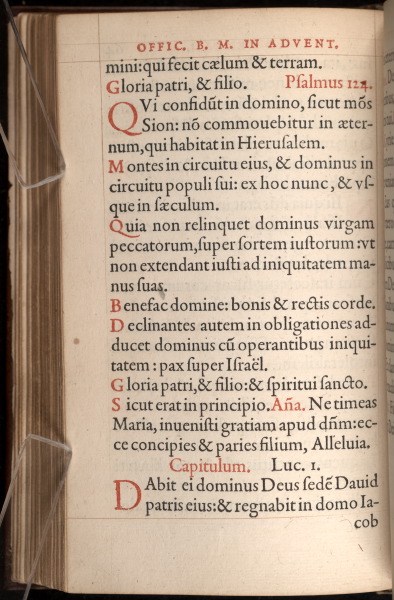 OFFIC. B. M. IN ADVENT.
mini:qui fecit cælum & terram.
Gloria patri, & filio. Pſalmus 124.
QVi confidūt in domino, ſicut mōs
Sion: nō commouebitur in æter-
num, qui habitat in Hieruſalem.
Montes in circuitu eius, & dominus in
circuitu populi ſui: ex hoc nunc, & vſ-
que in ſæculum.
Quia non relinquet dominus virgam
peccatorum, ſuper ſortem iuſtorum :vt
non extendant iuſti ad iniquitatem ma-
nus ſuas.
Benefac domine: bonis & rectis corde.
Declinantes autem in obligationes ad-
ducet dominus cū operantibus iniqui-
tatem : pax ſuper Iſraël.
Gloria patri, & filio:& ſpiritui ſancto.
Sicut erat in principio. Aña. Ne timeas
Maria, inueniſti gratiam apud dñm:ec-
ce concipies & paries filium, Alleluia.
Capitulum. Luc. 1.
DAbit ei dominus Deus ſedē Dauid
patris eius:& regnabit in domo Ia-
cob